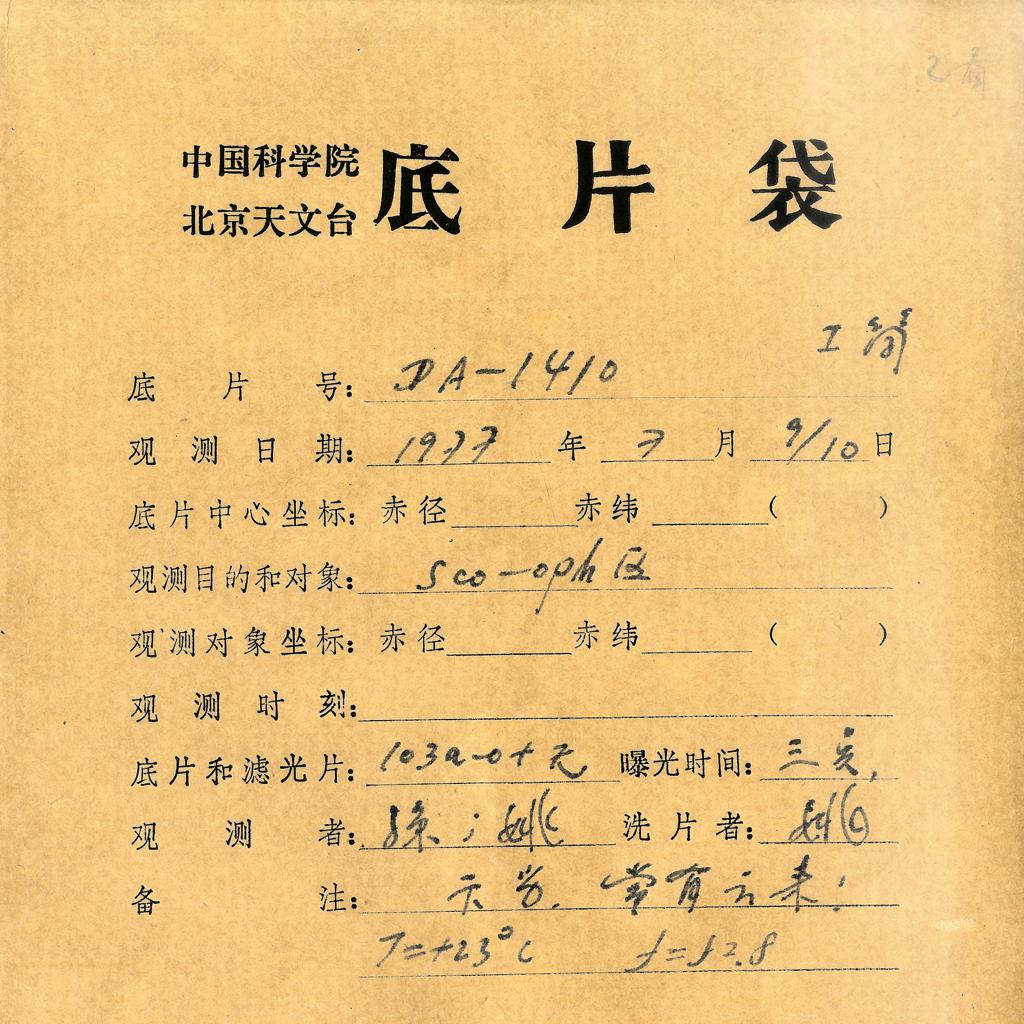 已看
中国科学院
北京天文台
底片袋
底片号: DA-1410
观测日期: 1977 年 7 月 9/10 日
底片中心坐标: 赤径 赤纬 ( )
观测目的和对象: Sco-oph 区
观测对象坐标: 赤径 赤纬 ( )
观测时刻:
底片和滤光片: 103a-0+无 曝光时间: 三
观测者: 姚 洗片者: 姚
备注: 常有云来!
T=+23°C f=f2.8